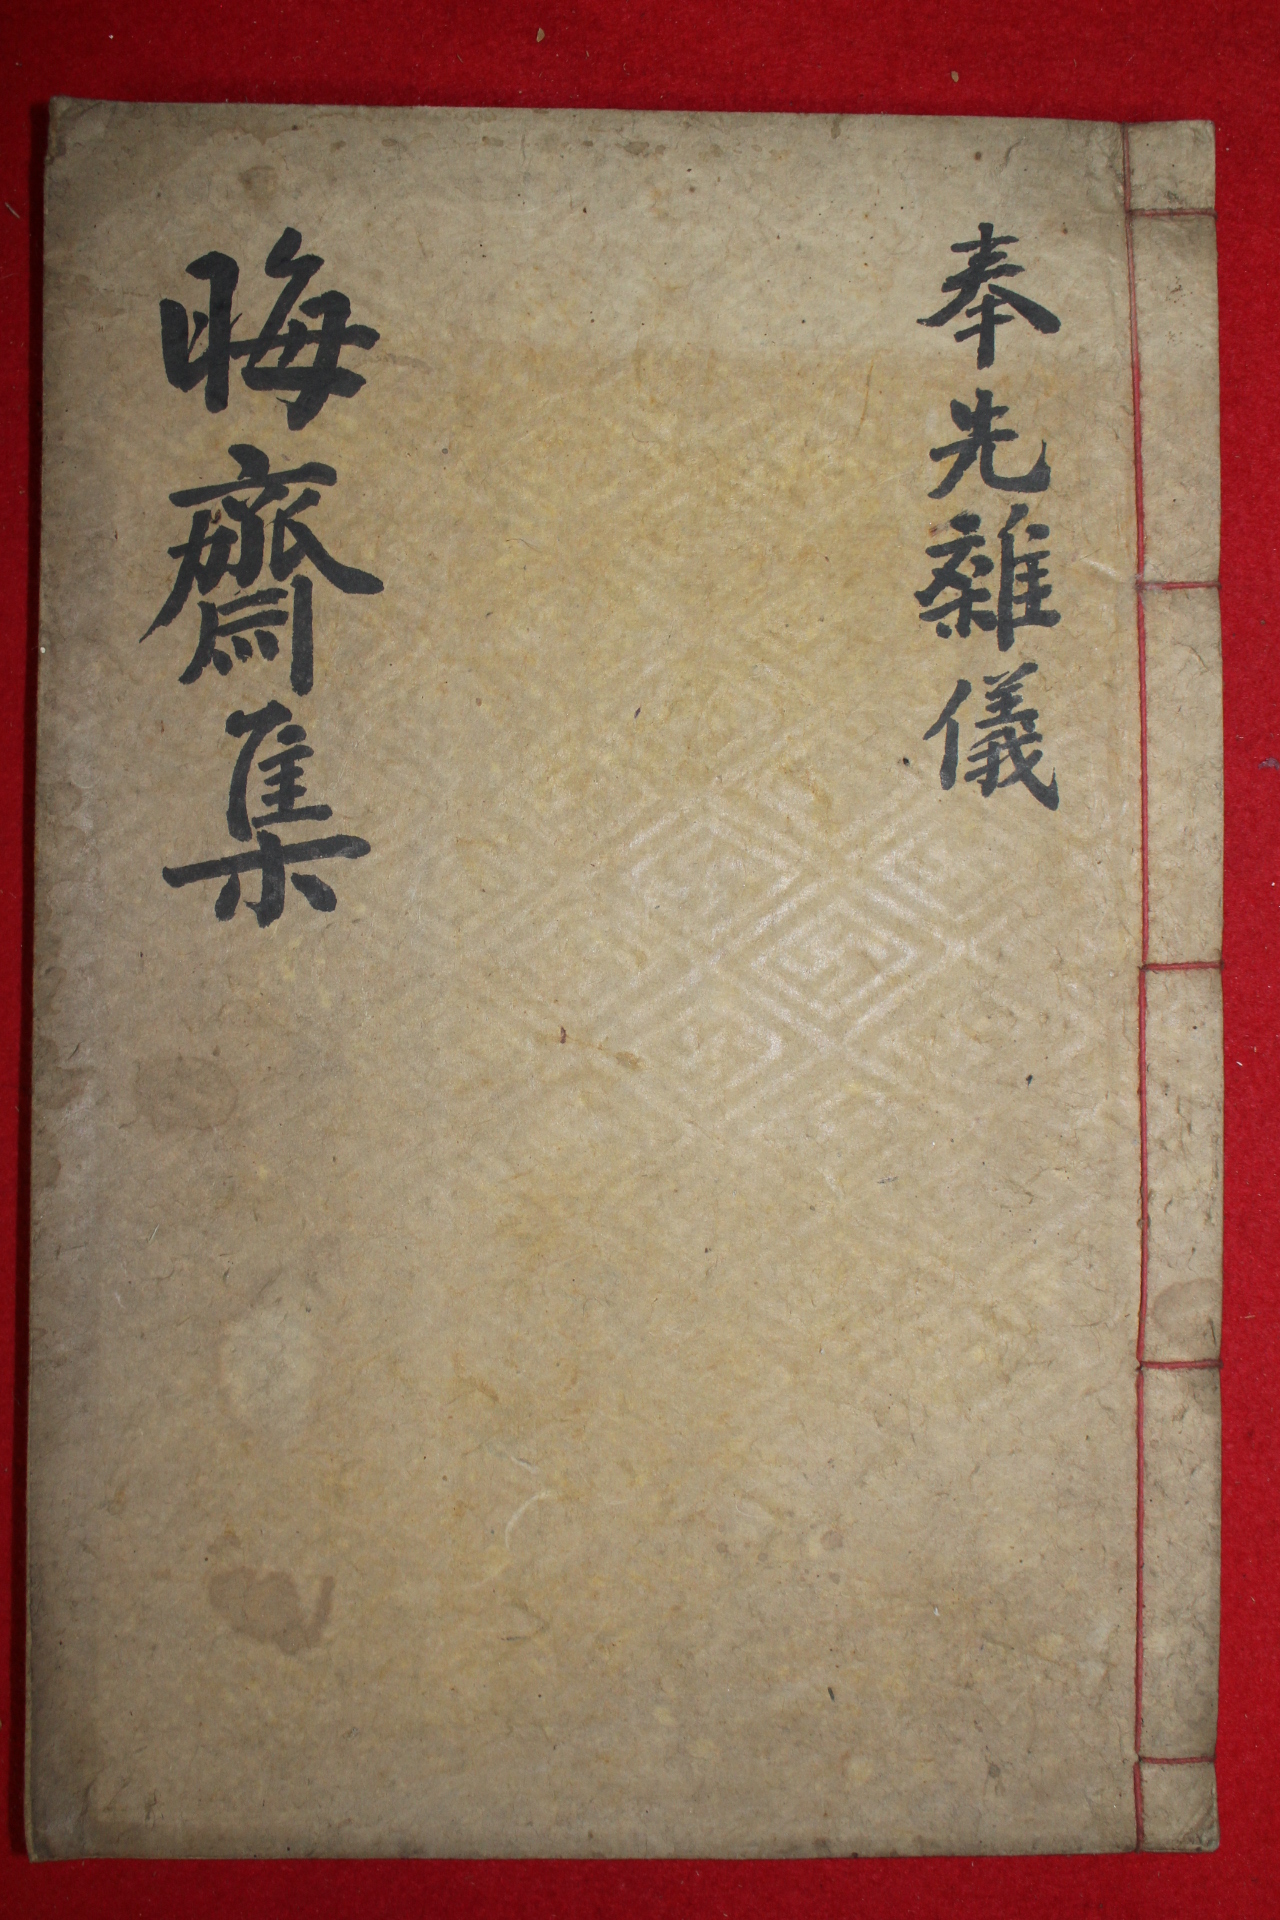 奉先雜儀
晦齋集